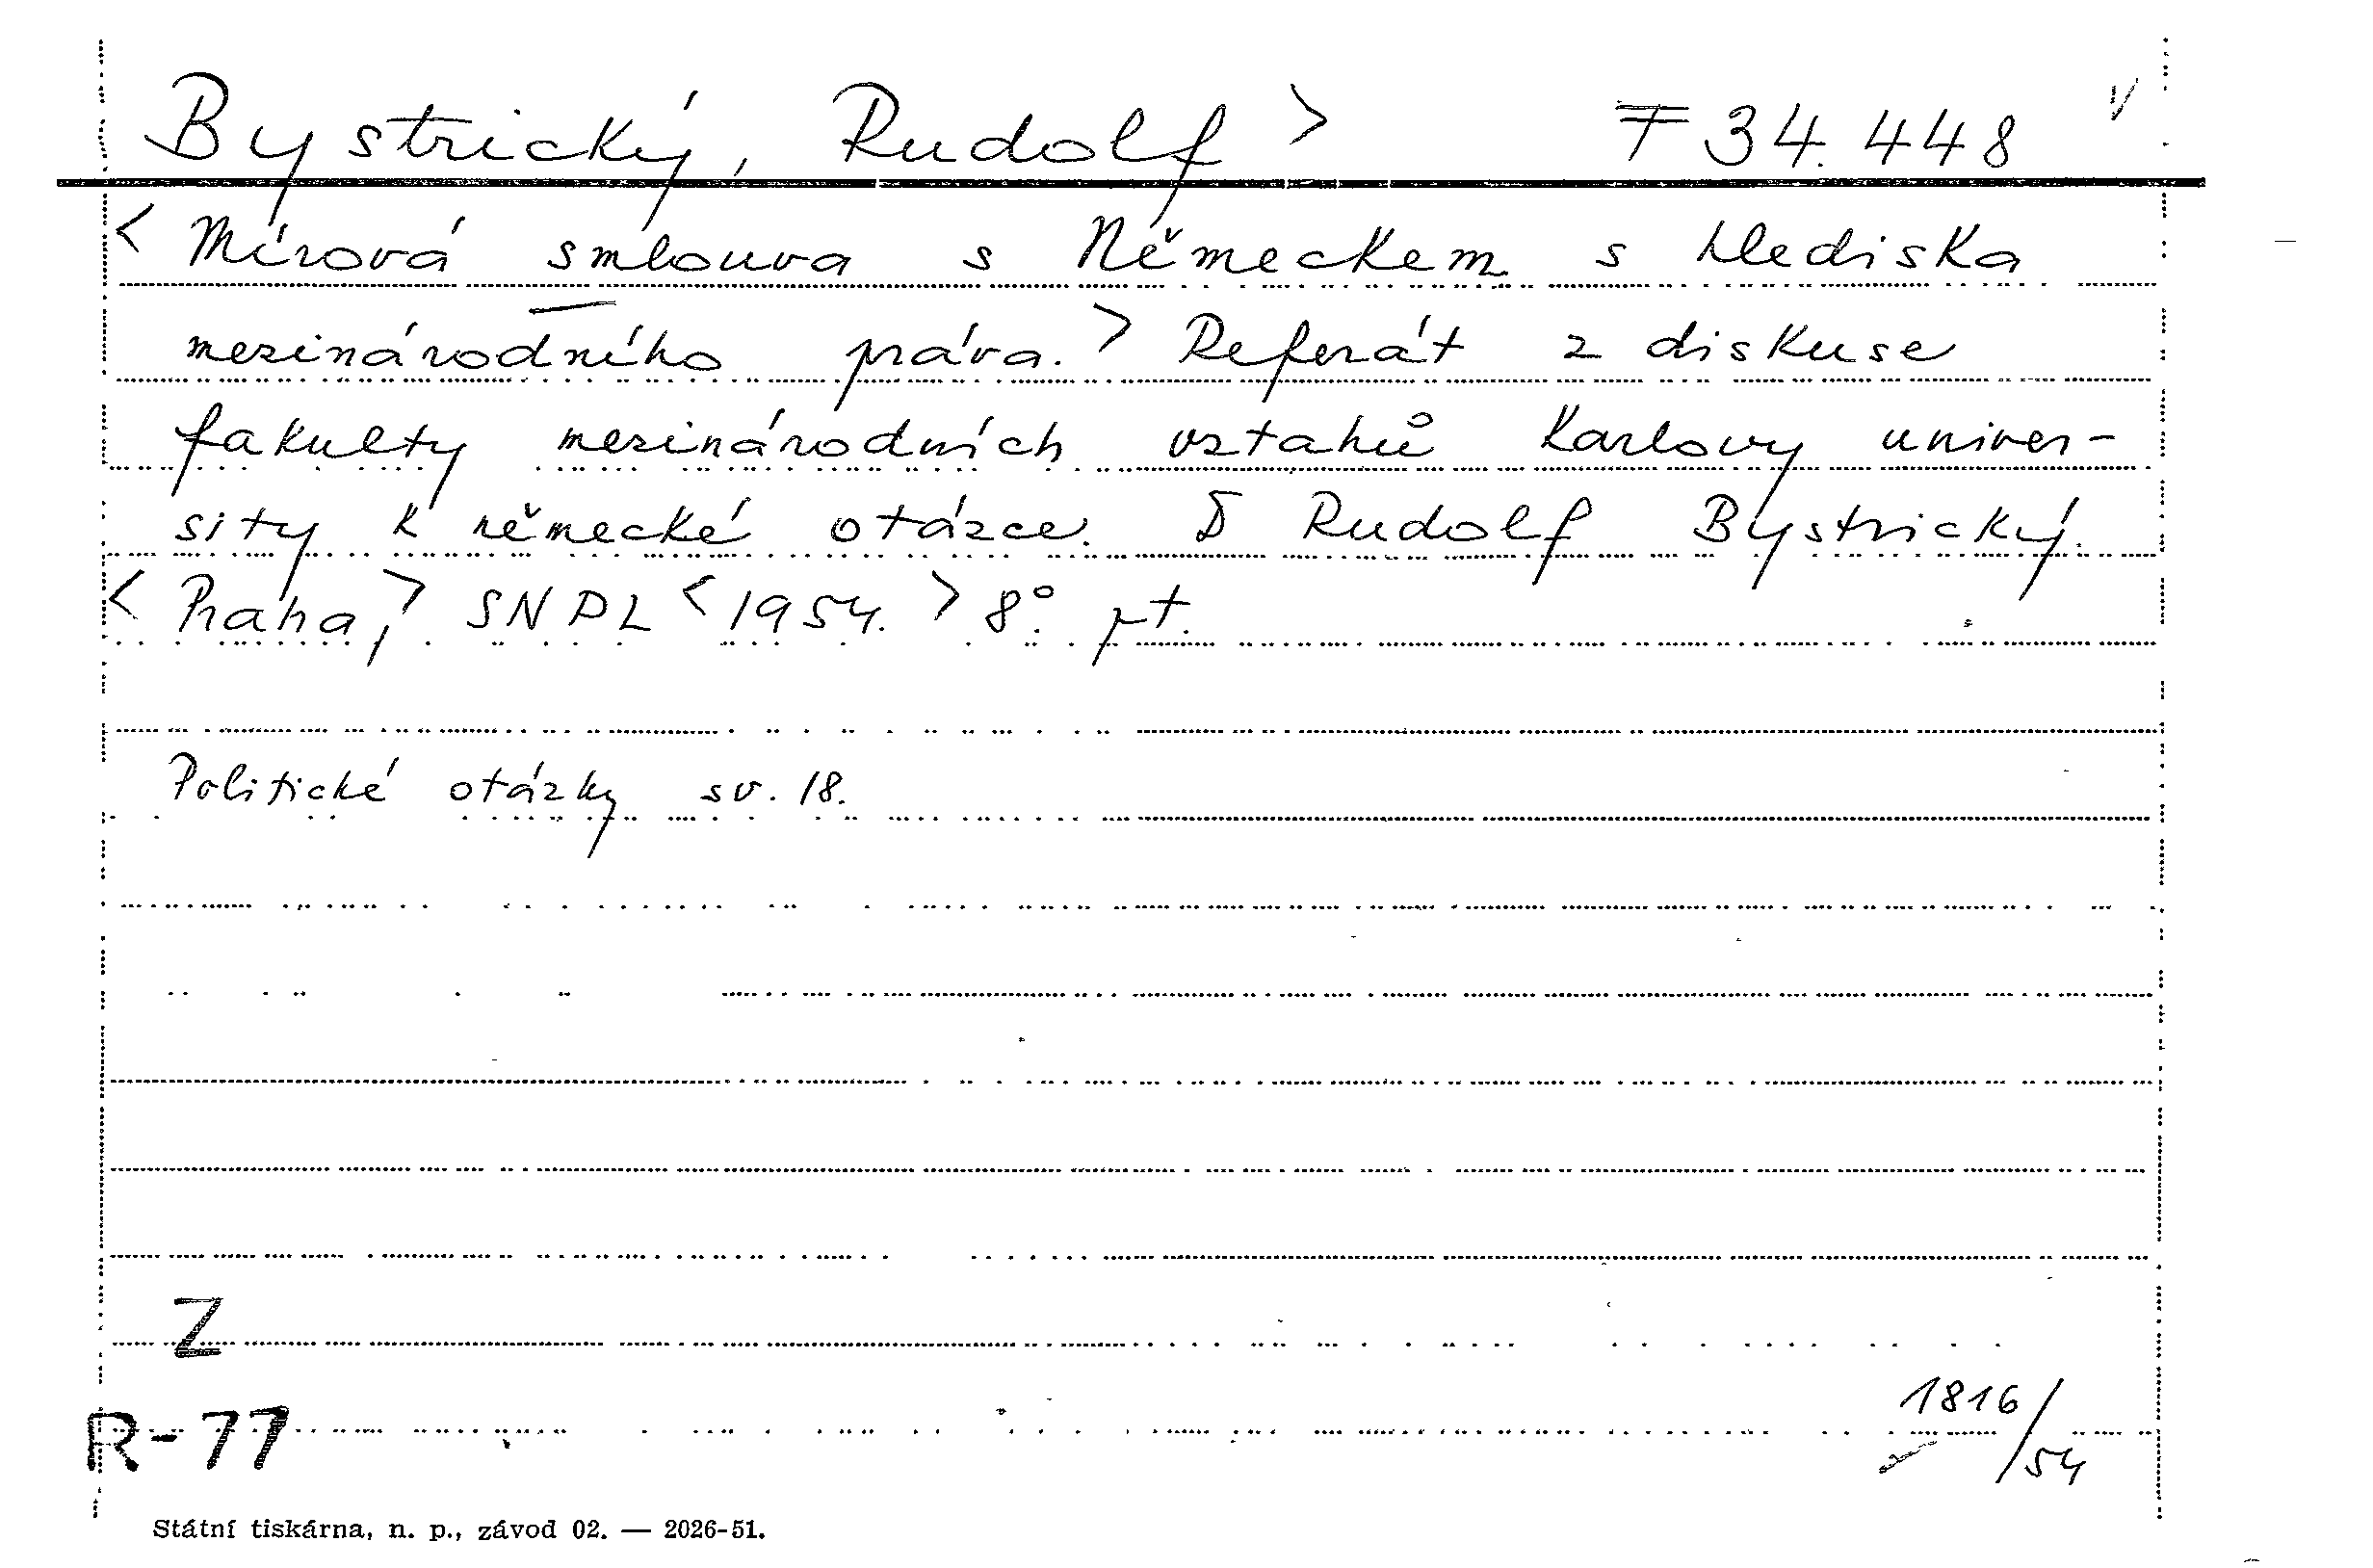 Bystrický, Rudolf > F 34.448 v
< Mírová smlouva s Německem s hlediska
mezinárodního práva. > Referát z diskuse
fakulty mezinárodních vztahů Karlovy univer-
sity k německé otázce. Rudolf Bystrický.
< Praha, > SNPL < 1954. > 8°. pt.
Politické otázky sv. 18.
Z
R-77
1816/54
Státní tiskárna, n. p., závod 02. — 2026-51.